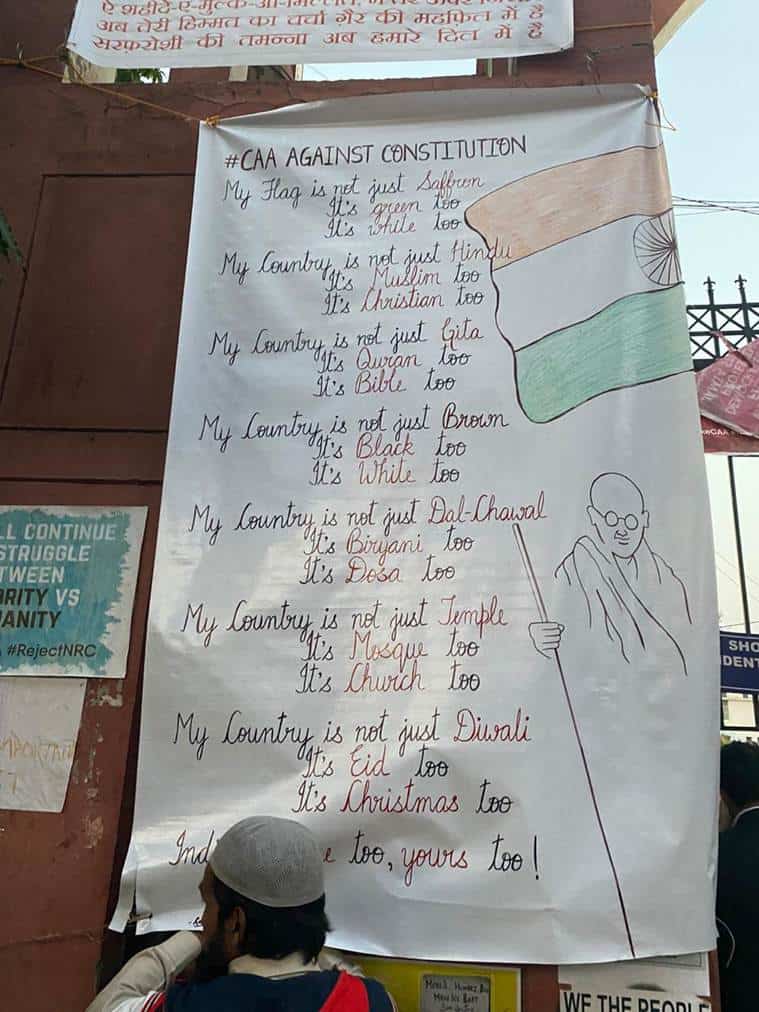 ऐ शहीदे-ए-मुल्क-ओ-मिल्लत,
अब तेरी हिम्मत का चर्चा ग़ैर की महफ़िल में है
सरफ़रोशी की तमन्ना अब हमारे दिल में है
#CAA AGAINST CONSTITUTION
My Flag is not just Saffron
It's green too
It's white too
My Country is not just Hindu
It's Muslim too
It's Christian too
My Country is not just Gita
It's Quran too
It's Bible too
My Country is not just Brown
It's Black too
It's White too
My Country is not just Dal-Chawal
It's Biryani too
It's Dosa too
My Country is not just Temple
It's Mosque too
It's Church too
My Country is not just Diwali
It's Eid too
It's Christmas too
too, yours too!
LL CONTINUE
STRUGGLE
TWEEN
ARITY VS
ANITY
#RejectNRC
SHO
DENT
WE THE PEOPLE